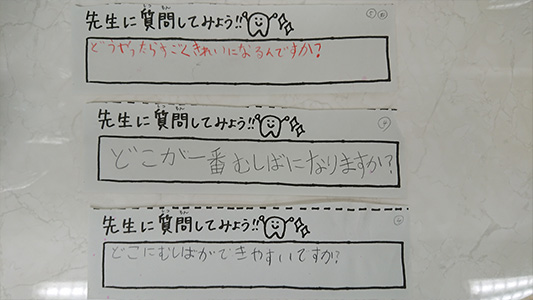 先生に質問してみよう!!
しつもん
どうやったらすごくきれいになるんですか?
先生に質問してみよう!!
しつもん
④
どこが一番むしばになりますか?
先生に質問してみよう!!
しつもん
どこにむしばができやすいですか?